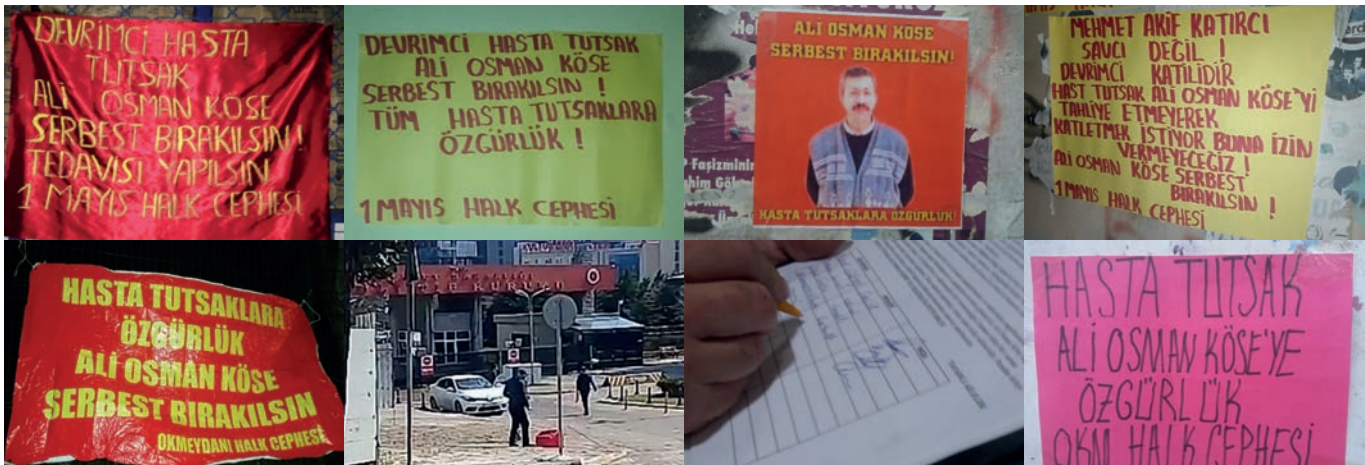 DEVRİMCİ HASTA
TUTSAK
ALİ OSMAN KÖSE
SERBEST BIRAKILSIN!
TEDAVİSİ YAPILSIN
1 MAYIS HALK CEPHESİ
DEVRİMCİ HASTA TUTSAK
ALİ OSMAN KÖSE
SERBEST BIRAKILSIN !
TÜM HASTA TUTSAKLARA
ÖZGÜRLÜK !
1 MAYIS HALK CEPHESİ
ALİ OSMAN KÖSE
SERBEST BIRAKILSIN!
HASTA TUTSAKLARA ÖZGÜRLÜK!
P Faşizminin
MEHMET AKİF KATIRCI
SAVCI DEĞİL !
DEVRİMCİ KATİLİDİR
HAST TUTSAK ALİ OSMAN KÖSE'Yİ
TAHLİYE ETMEYEREK
KATLETMEK İSTİYOR BUNA İZİN
VERMEYECEĞİZ !
ALİ OSMAN KÖSE SERBEST
BIRAKILSIN !
1 MAYIS HALK CEPHESİ
HASTA TUTSAKLARA
ÖZGÜRLÜK
ALİ OSMAN KÖSE
SERBEST BIRAKILSIN
OKMEYDANI HALK CEPHESİ
KURUMU
HASTA TUTSAK
ALİ OSMAN KÖSE'YE
ÖZGÜRLÜK
OKM HALK CEPHESİ